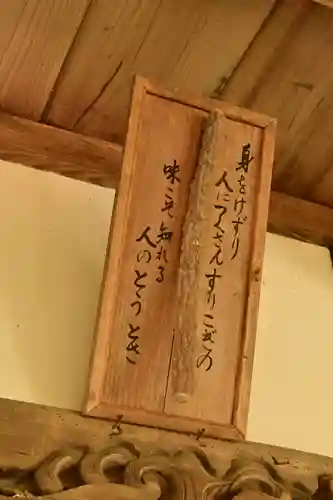 身をけずり
人につくさんすりこぎの
味こそ知れる
人のとうとさ